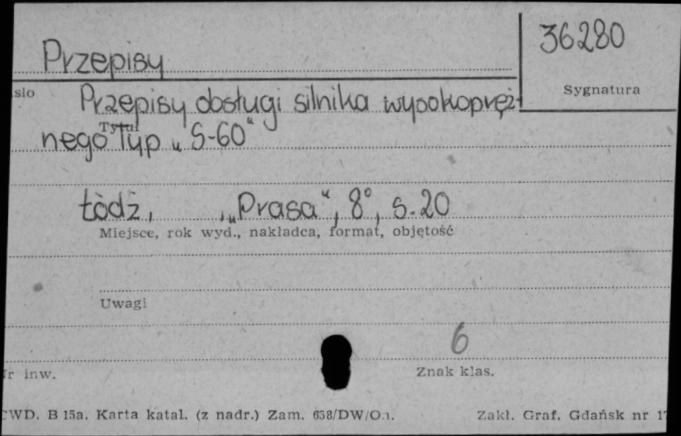 36280
Przepisy
sło
Sygnatura
Przepisy obsługi silnika wysokopręż-
nego Typ „S-60"
Tytuł
Łódź, , „Prasa", 8°, s. 20
Miejsce, rok wyd., nakładca, format, objętość
Uwagi
6
r inw.
Znak klas.
CWD. B 15a. Karta katal. (z nadr.) Zam. 658/DW/On.
Zakł. Graf. Gdańsk nr 1